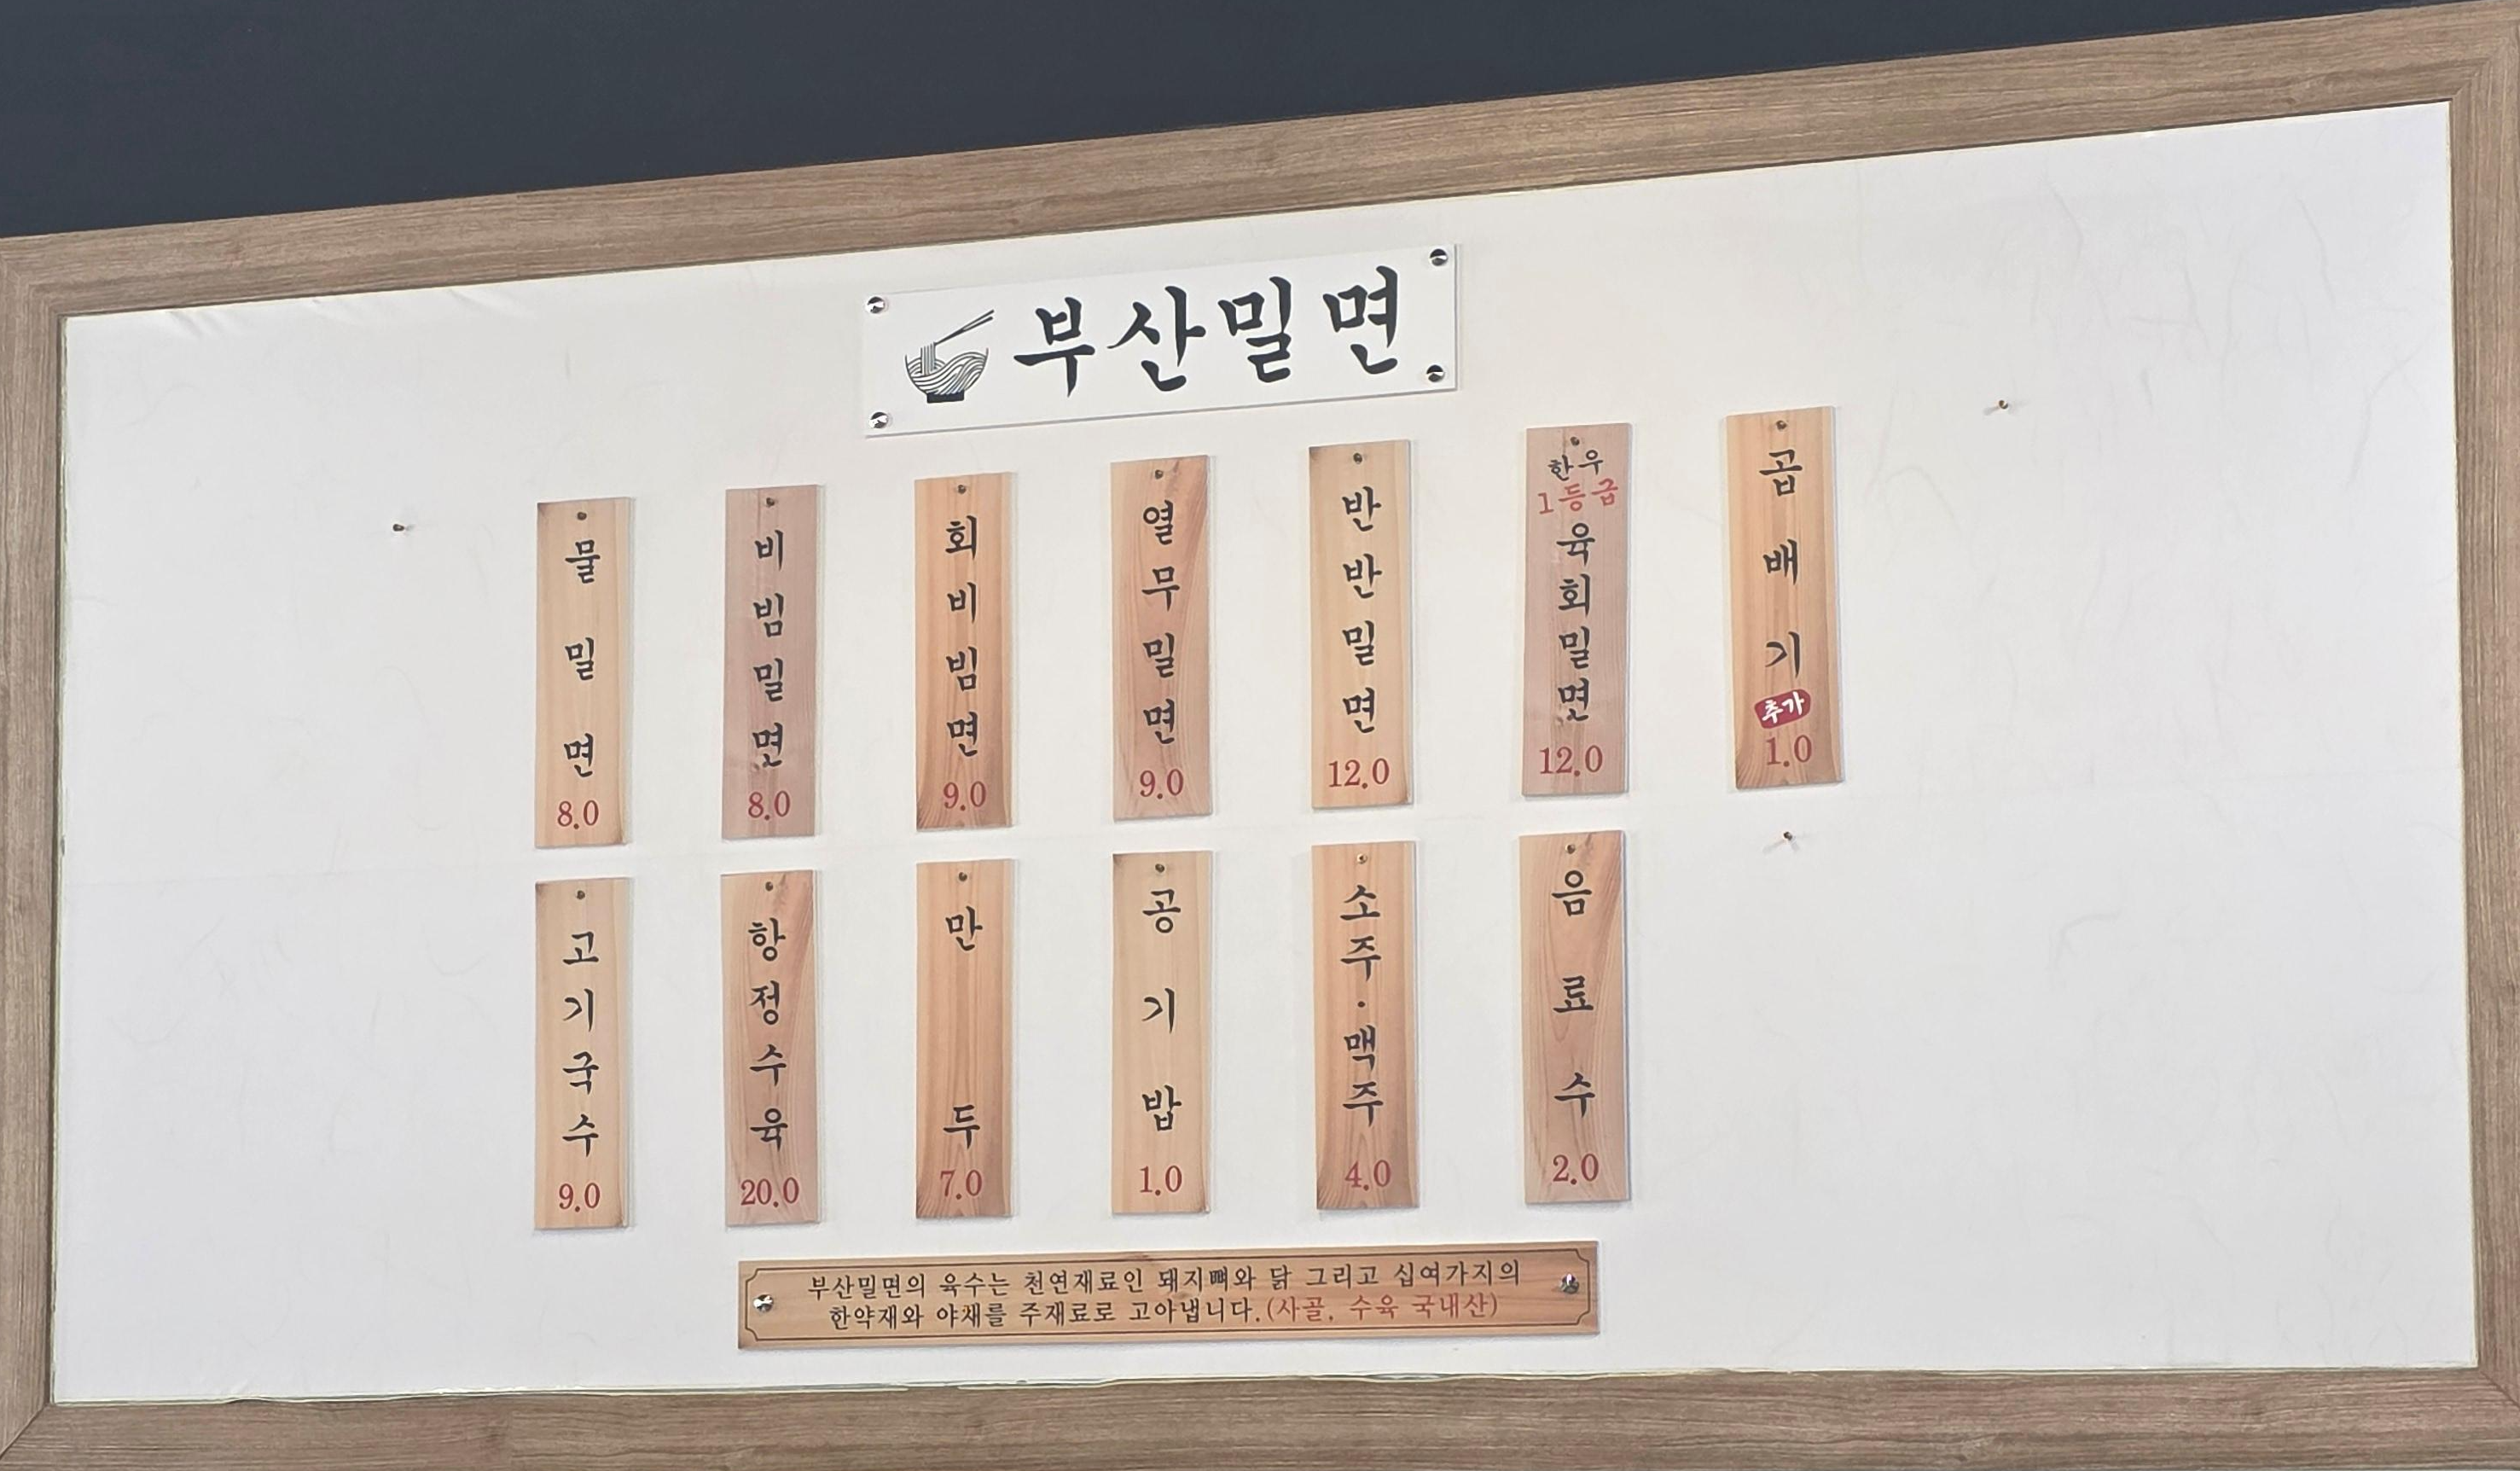 부산밀면
물밀면
8.0
비빔밀면
8.0
회비빔면
9.0
열무밀면
9.0
반반밀면
12.0
한우
1등급
육회밀면
12.0
곱배기
추가
1.0
고기국수
9.0
항정수육
20.0
만두
7.0
공기밥
1.0
소주·맥주
4.0
음료수
2.0
부산밀면의 육수는 천연재료인 돼지뼈와 닭 그리고 십여가지의
한약재와 야채를 주재료로 고아냅니다.(사골, 수육 국내산)